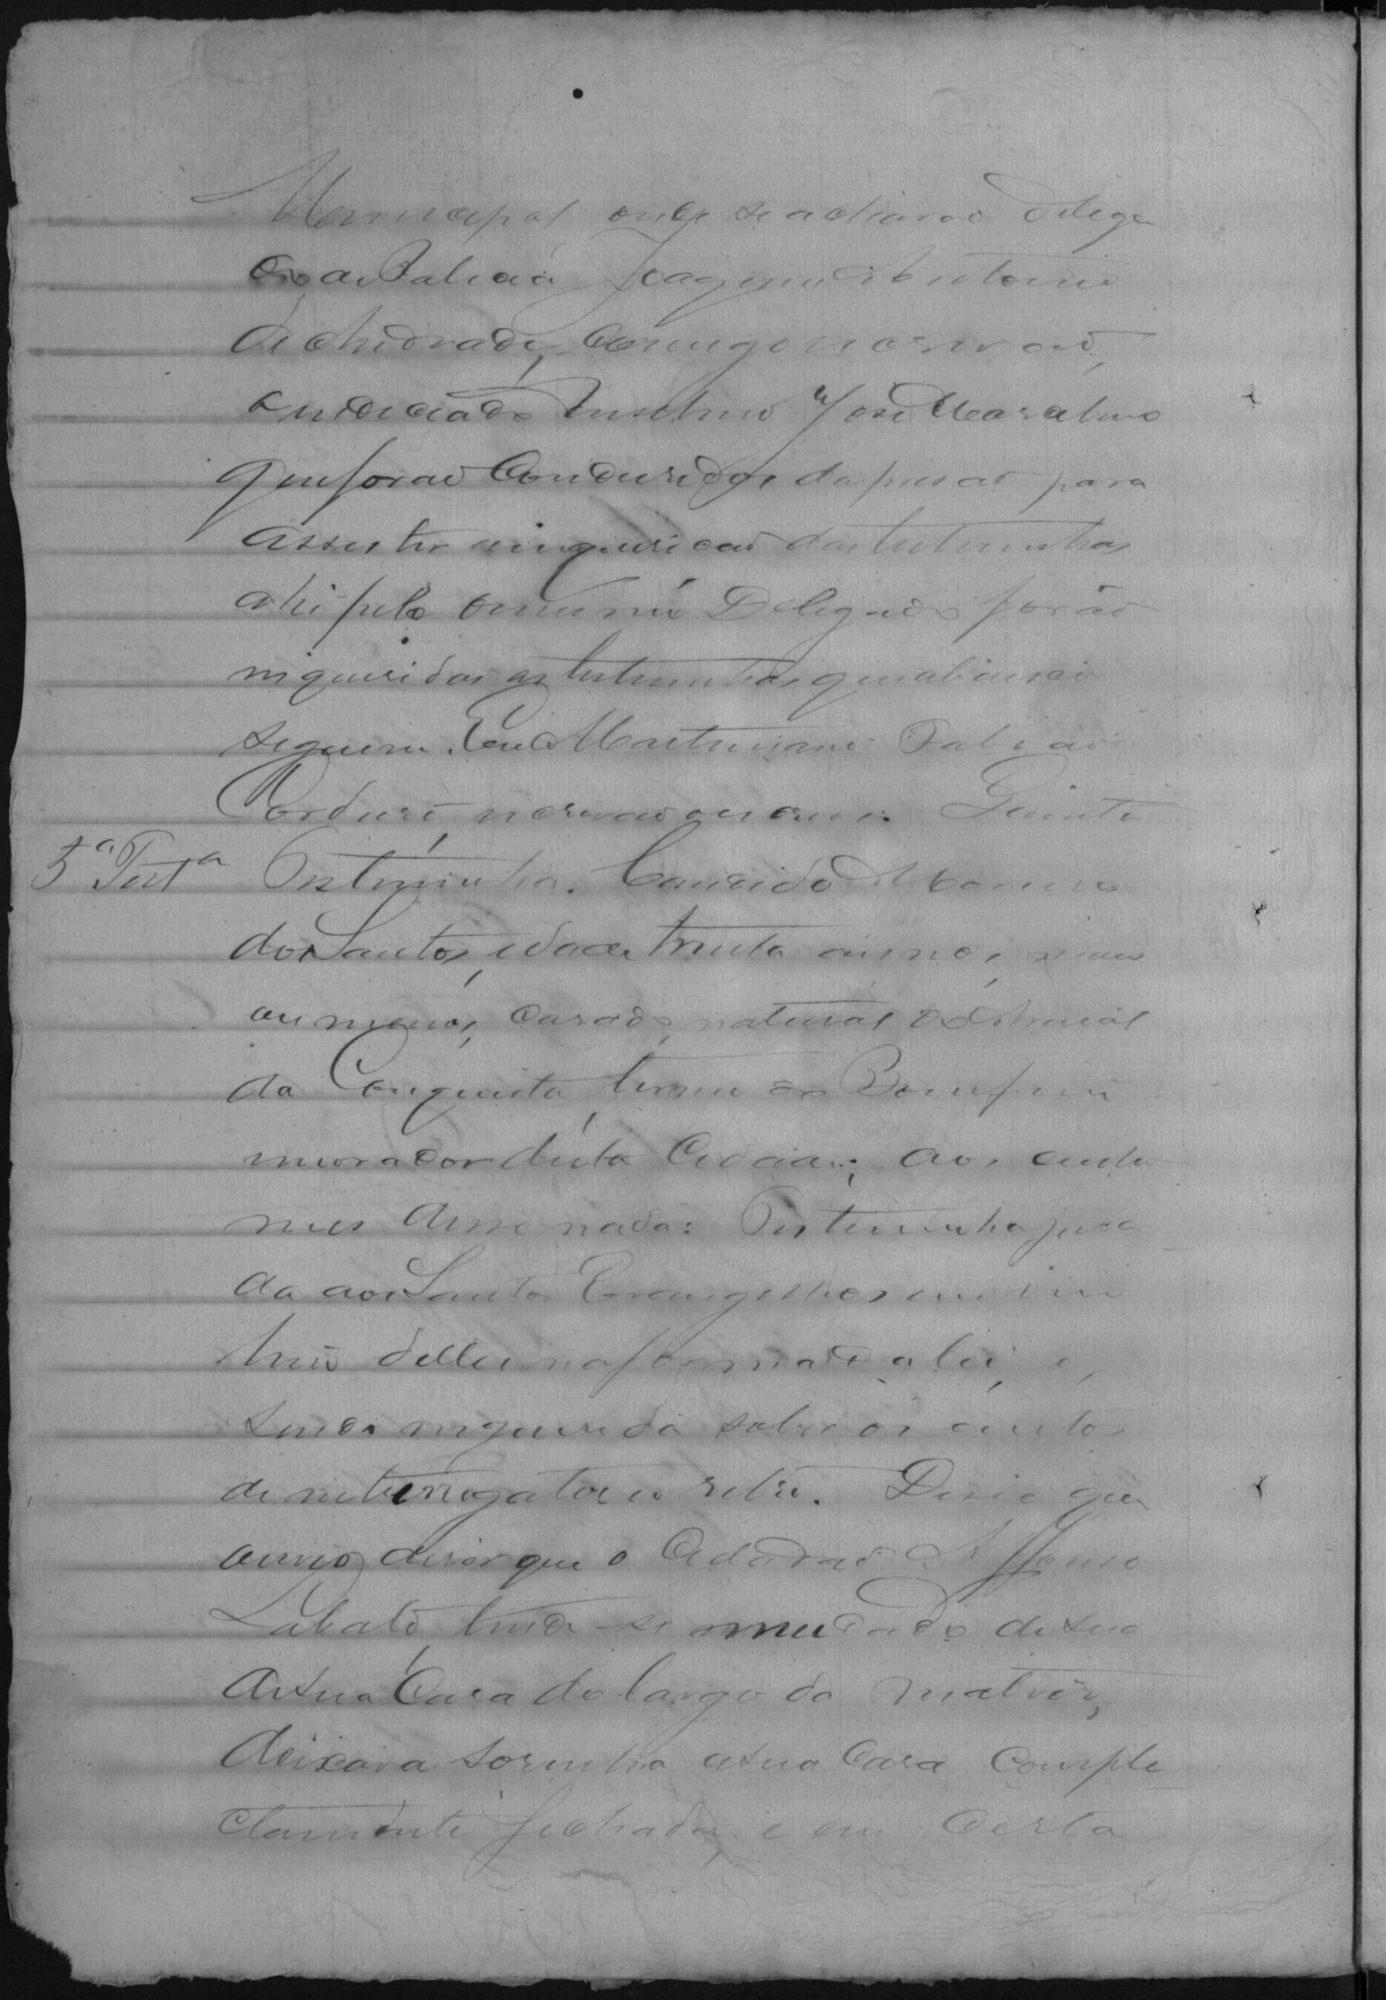 Municipal onde se achavaõ Delega
do de Policia Joaquim Antonio
de Andrade, comigo escrivaõ,
o indiciado Anselmo José Marcelino
que foraõ Conduzidos da prisaõ para
assestir a inquiricaõ das testemunhas
ahi pelo mesmo Delegado foraõ
inqueridas as testemunhas que abaixo
seguem. Eu Martiniano
Cordeiro escrivaõ escrevi. Quinta
5ª Testª Testeminha. Candido
dos Santos, idade trinta annos, mais
ou menos, casado, natural
da Conquista, termo do Bomfim
morador desta Cidade; aos custu
mes disse nada: Testeminha jura
da aos Santos Evangelhos em um
livro delles na forma da lei, e,
sendo inquerida sobre os autos
de interrogatorio retro. Disse que
ouvio dizer que o Cidadaõ Affonso
Labató, tendo-se mudado de sua
de sua Casa do largo da Matriz,
deixara sosinha a sua Casa comple
ctamente fechada, e em certa